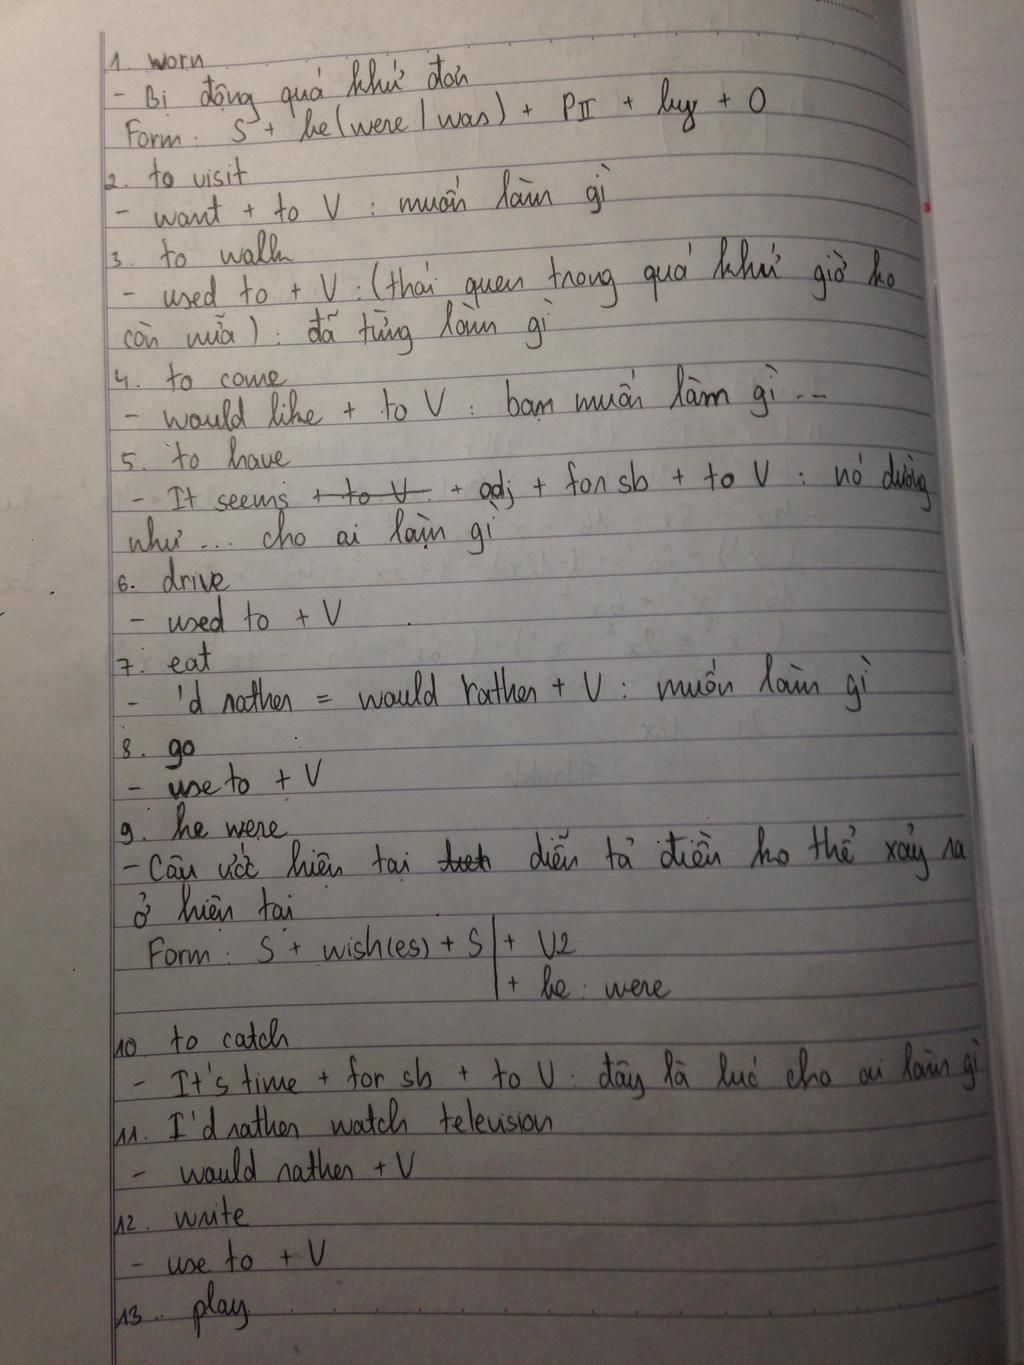 1. worn
- Bị động quá khứ đơn
Form: S + be (were | was) + PII + by + O
2. to visit
- want + to V : muốn làm gì
3. to walk
- used to + V : (thói quen trong quá khứ giờ ko
còn nữa) : đã từng làm gì
4. to come
- would like + to V : bạn muốn làm gì ...
5. to have
- It seems + to V + adj + for sb + to V : nó dường
như ... cho ai làm gì
6. drive
- used to + V
7. eat
- 'd rather = would rather + V : muốn làm gì
8. go
- use to + V
9. he were
- Câu ước hiện tại diễn tả điều ko thể xảy ra
ở hiện tại
Form : S + wish(es) + S | + V2
| + be : were
10. to catch
- It's time + for sb + to V : đây là lúc cho ai làm gì
11. I'd rather watch television
- would rather + V
12. write
- use to + V
13. play